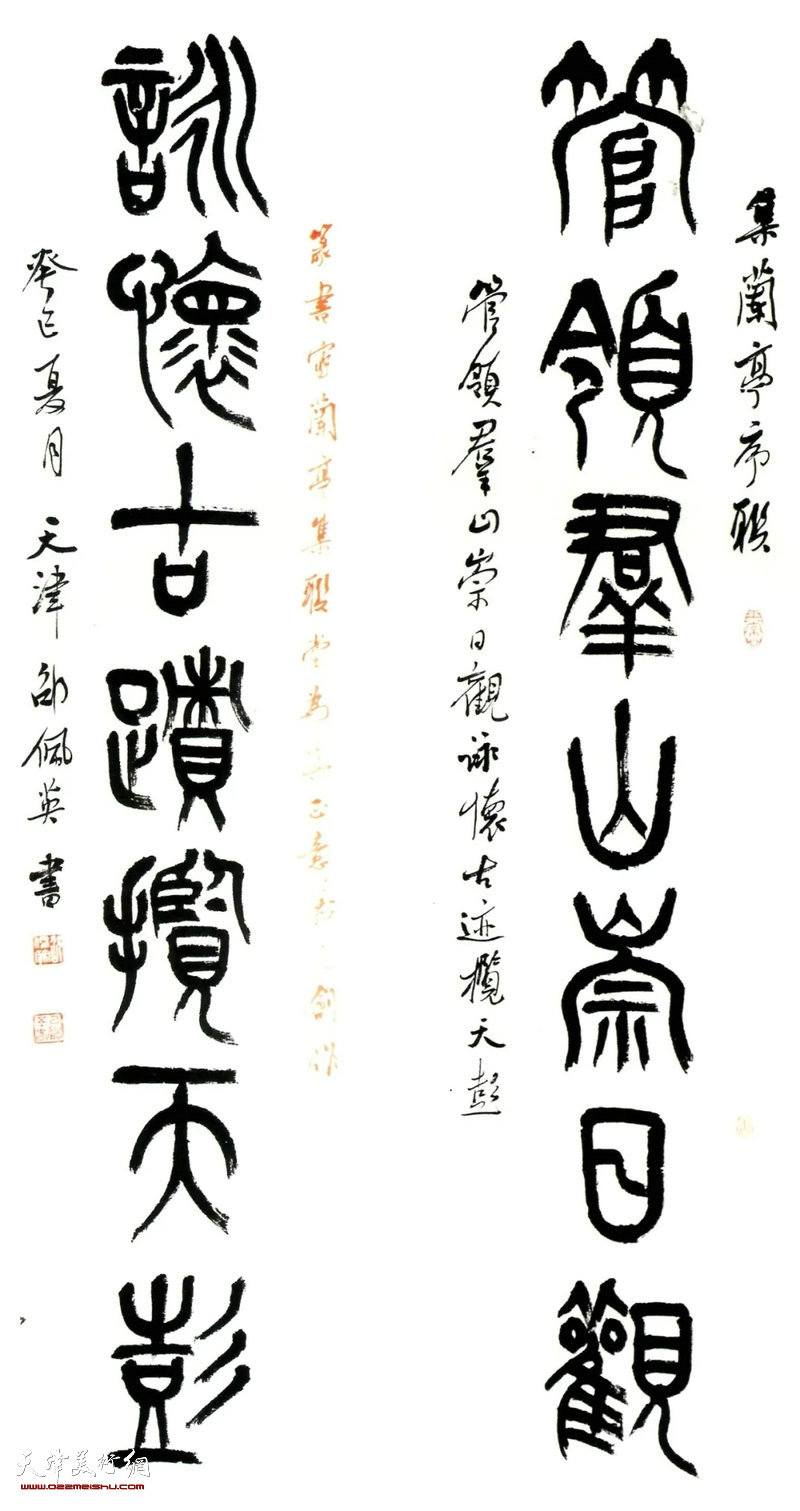 集蘭亭序聯
管領羣山崇日觀
管領羣山崇日觀詠懷古迹攬天彭
篆書 蘭亭集聯 為 正意 創作
詠懷古蹟攬天彭
癸巳夏月 天津 邵佩英書
天津美術網
www.022meishu.com